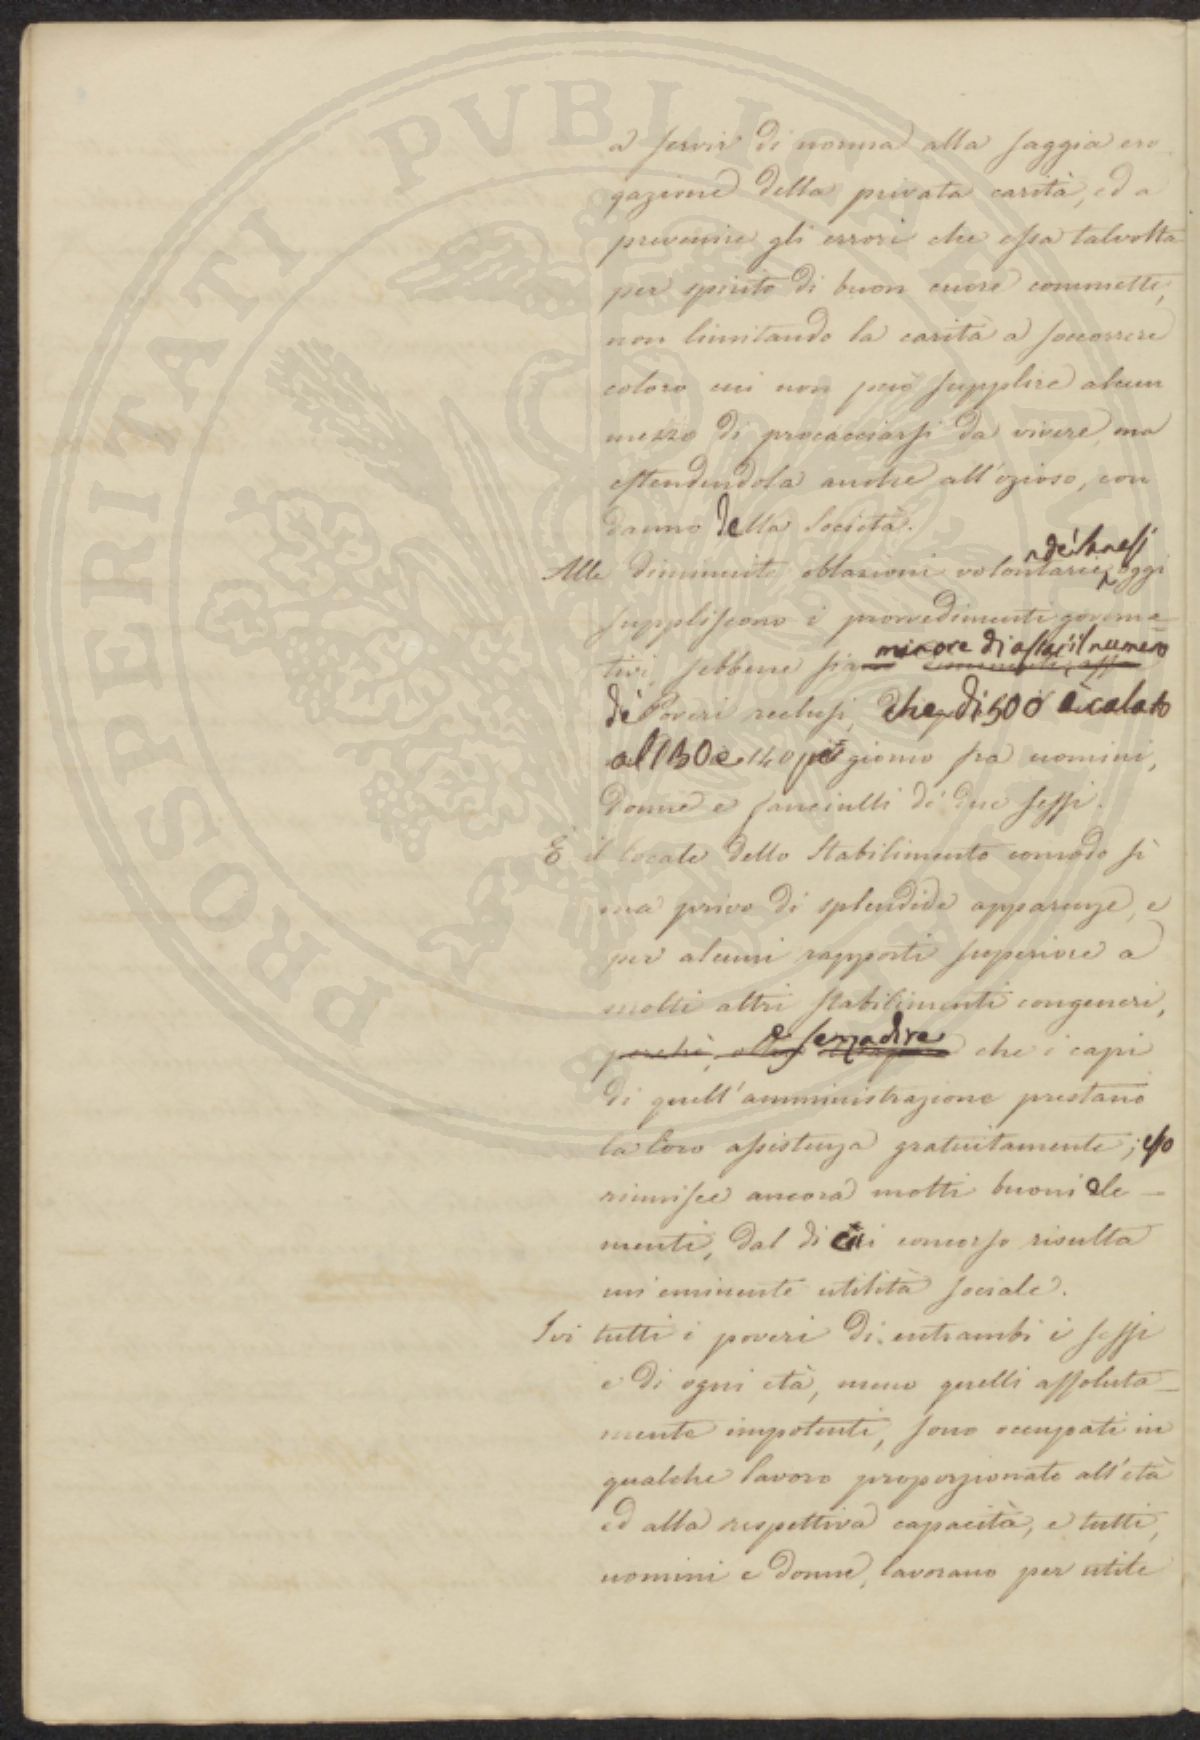 a servir di norma alla saggia ero
gazione della privata carità, ed a
prevenire gli errori che essa talvolta
per spirito di buon cuore commette,
non limitando la carità a soccorrere
coloro cui non può supplire alcun
mezzo di procacciarsi da vivere, ma
estendendola anche all'ozioso, con
danno della Società.
de' Sanesi
Alle diminuite oblazioni volontarie oggi
suppliscono i provvedimenti governa-
minore di assai il numero
tivi, sebbene sia
de' Poveri reclusi, che di 500 è calato
al 130 e 140 per giorno fra uomini,
donne e fanciulli de' due sessi.
È il locale dello Stabilimento comodo sì
ma privo di splendide apparenze, e
per alcuni rapporti superiore a
molti altri stabilimenti congeneri,
e senza dire
perchè, che i capi
di quell'amministrazione prestano
la loro assistenza gratuitamente; esso
riunisce ancora molti buoni ele-
menti, dal di cui concorso risulta
un'eminente utilità sociale.
Ivi tutti i poveri di entrambi i sessi
e di ogni età, meno quelli assoluta-
mente impotenti, sono occupati in
qualche lavoro proporzionato all'età
ed alla respettiva capacità, e tutti,
uomini e donne, lavorano per utile
PROSPERITATI PVBLICAE